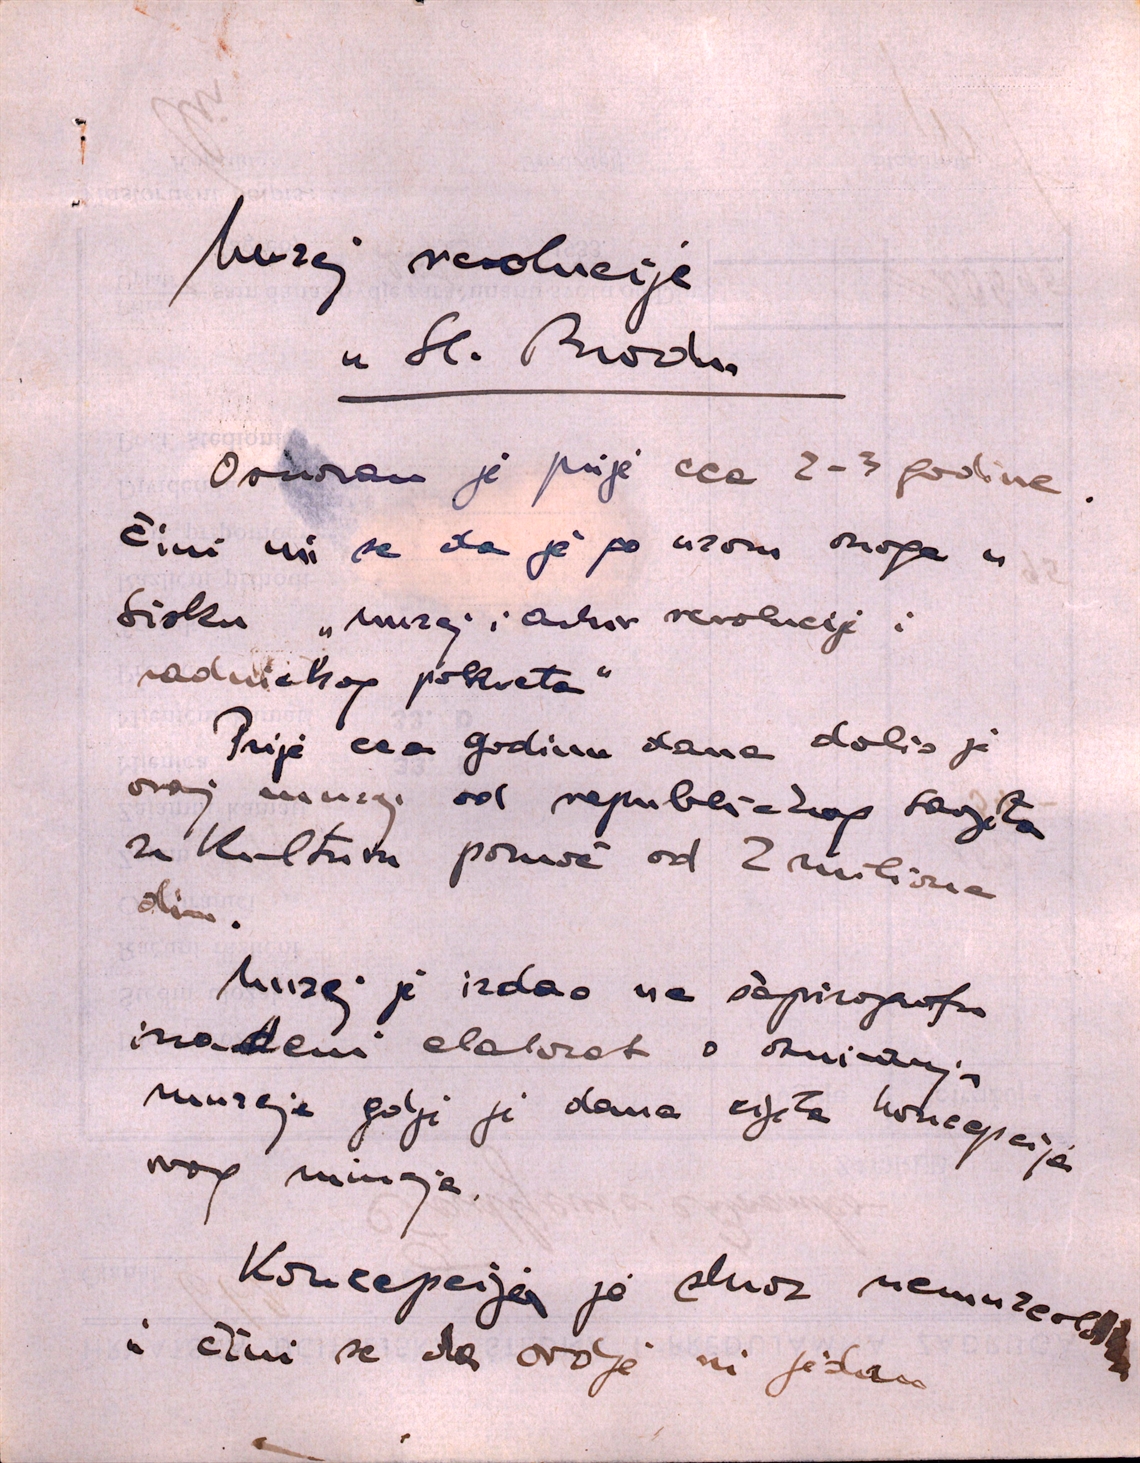 Muzej revolucije
u Sl. Brodu
Osnovan je prije cca 2-3 godine.
Čini mi se da je po uzoru onoga u
Sisku „Muzej i arhiv revolucije i
radničkog pokreta“
Prije cca godinu dana dobio je
ovaj muzej od republičkog Savjeta
za Kulturu pomoć od 2 miliona
din.
Muzej je izdao na šapirografu
izrađeni elaborat o osnivanju
muzeja gdje je dana cijela koncepcija
ovog muzeja.
Koncepcija je skroz nemuzeol
i čini se da ovdje ni jedan